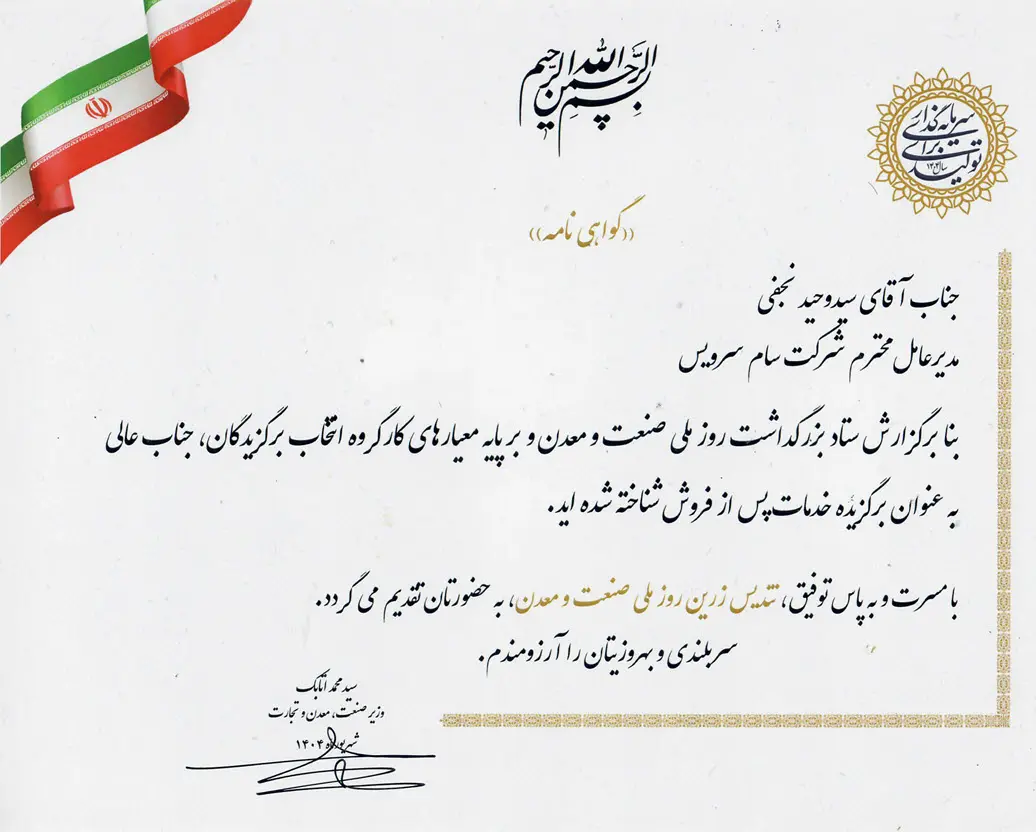 بسم الله الرحمن الرحیم
سرمایه‌گذاری
برای
تولید
سال ۱۴۰۴
((گواهی نامه))
جناب آقای سیدوحید نجفی
مدیرعامل محترم شرکت سام سرویس
بنا برگزارش ستاد بزرگداشت روز ملی صنعت و معدن و بر پایه معیارهای کارگروه انتخاب برگزیدگان، جناب عالی
به عنوان برگزیده خدمات پس از فروش شناخته شده اید.
با مسرت و به پاس توفیق، تندیس زرین روز ملی صنعت و معدن، به حضورتان تقدیم می گردد.
سربلندی و بهروزیتان را آرزومندم.
سید محمد اتابک
وزیر صنعت، معدن و تجارت
شهریورماه ۱۴۰۴